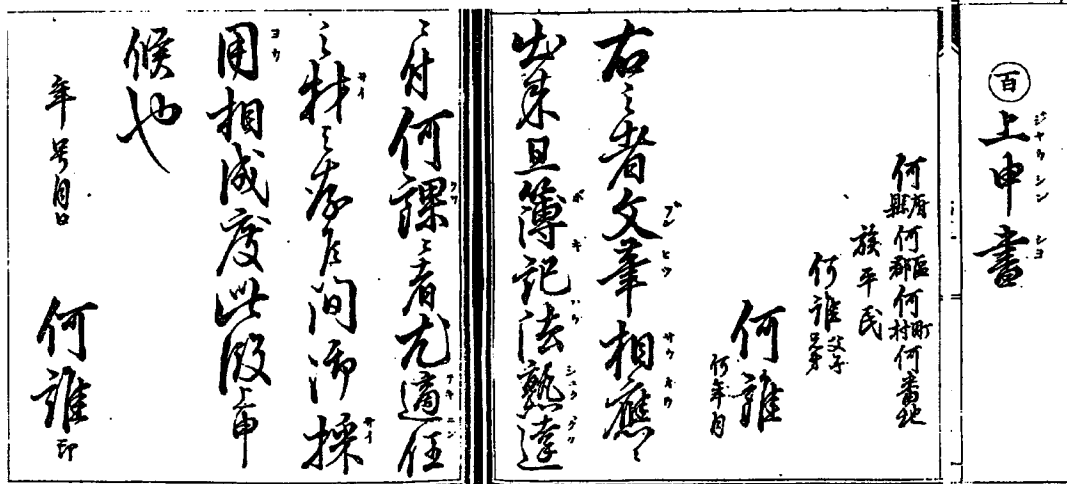 百 上申書
何府縣何區郡何町村何番地
族平民
何誰父子兄弟
何誰
何年月
右之者文筆相應ニ
出来且簿記法熟達
ニ付何課ニ者尤適任
之材ト存候間御採
用相成度此段上申
候也
年号月日
何誰印